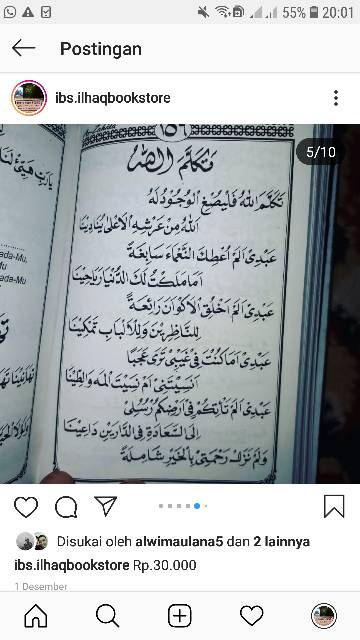 55% 20:01
Postingan
ibs.ilhaqbookstore
5/10
١٥٦
تكلم الله
تَكَلَّمَ اللهُ فَلْيُصْغِ الْوُجُوْدُ لَهُ
اَللهُ مِنْ عَرْشِهِ الْاَعْلٰى يُنَادِيْنَا
عَبْدِيْ اَلَمْ اُعْطِكَ النَّعْمَاءَ سَابِغَةً
اَمَا مَلَكْتُ لَكَ الدُّنْيَا رَيَاحِيْنَا
عَبْدِيْ اَلَمْ اَخْلُقِ الْاَكْوَانَ رَائِعَةً
لِلنَّاظِرِيْنَ وَلِلْاَلْبَابِ تَمْكِيْنَا
عَبْدِيْ اَمَا كُنْتَ فِيْ غَيْبِيْ تَرٰى عَجَبًا
اَنَسِيْتَنِيْ اَمْ نَسِيْتَ الْمَاءَ وَالطِّيْنَا
عَبْدِيْ اَلَمْ تَأْتِكُمْ فِيْ اَرْضِكُمْ رُسُلِيْ
اِلَى السَّعَادَةِ فِي الدَّارَيْنِ دَاعِيْنَا
وَلَمْ تَزَلْ رَحْمَتِيْ بِالْخَيْرِ شَامِلَةً
ada-Mu,
Mu
ada-Mu
Disukai oleh alwimaulana5 dan 2 lainnya
ibs.ilhaqbookstore Rp.30.000
1 Desember